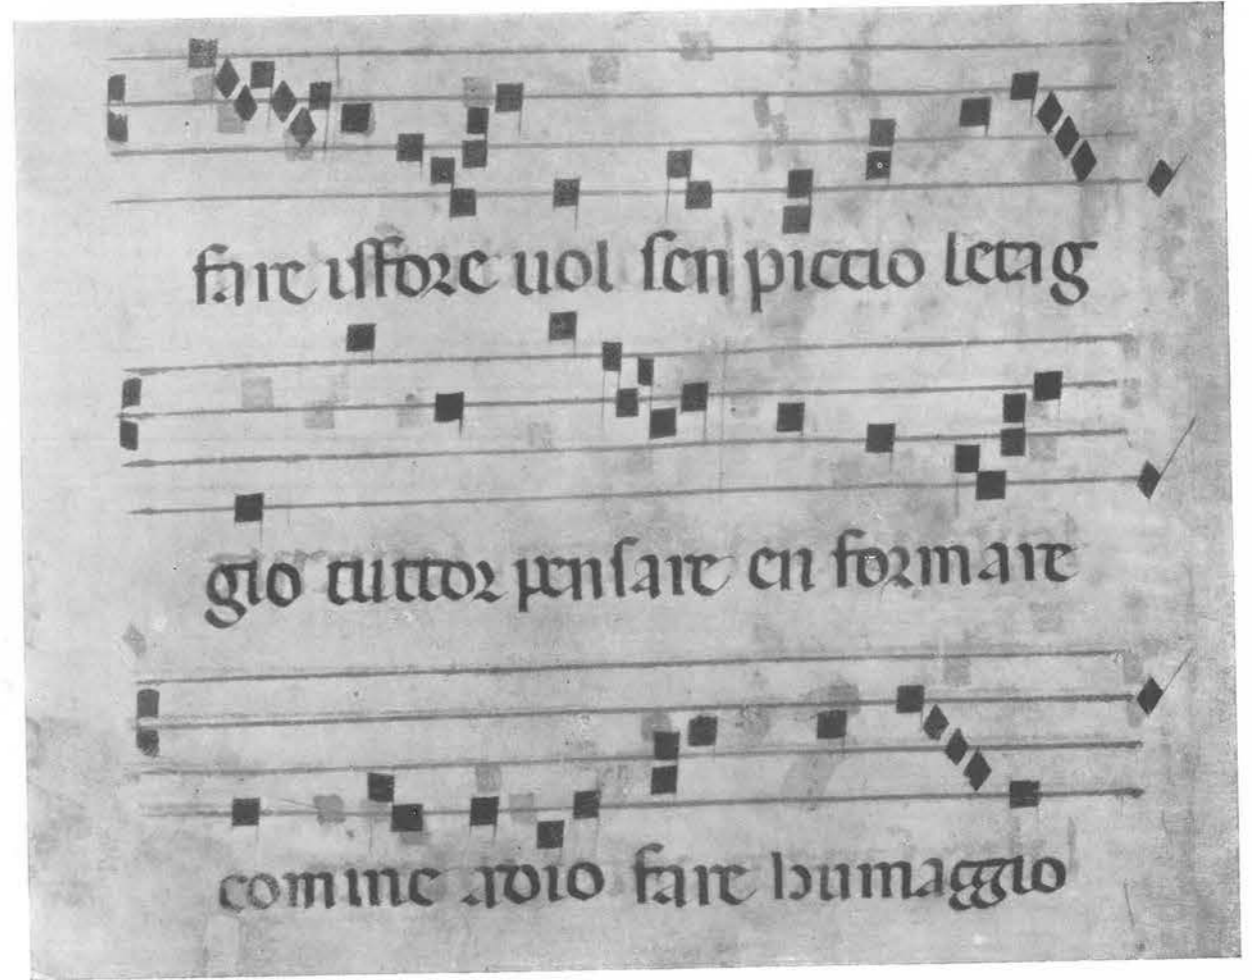 fare isfore uol sen piccio letag
gio tuttor pensare en formare
comme adio fare humaggio